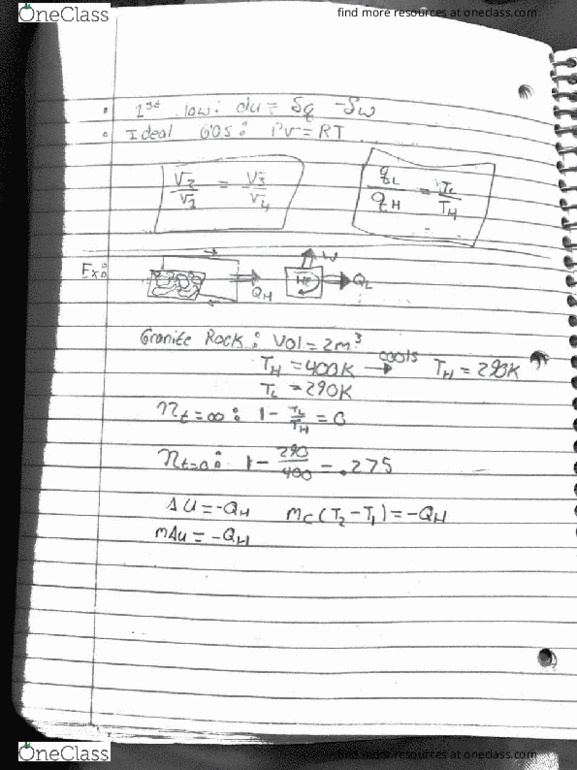 OneClass
find more resources at oneclass.com
• 1st law: du = δq - δw
• Ideal Gas: Pv = RT
V2/V1 = V3/V4
qL/qH = TL/TH
Ex:
W
QH
HE
QL
Granite Rock: Vol = 2m³
TH = 400K cools → TH = 290K
TL = 290K
ηt=∞: 1 - TL/TH = 0
ηt=0: 1 - 290/400 = .275
ΔU = -QH mc(T2 - T1) = -QH
mΔu = -QH
OneClass
find more resources at oneclass.com